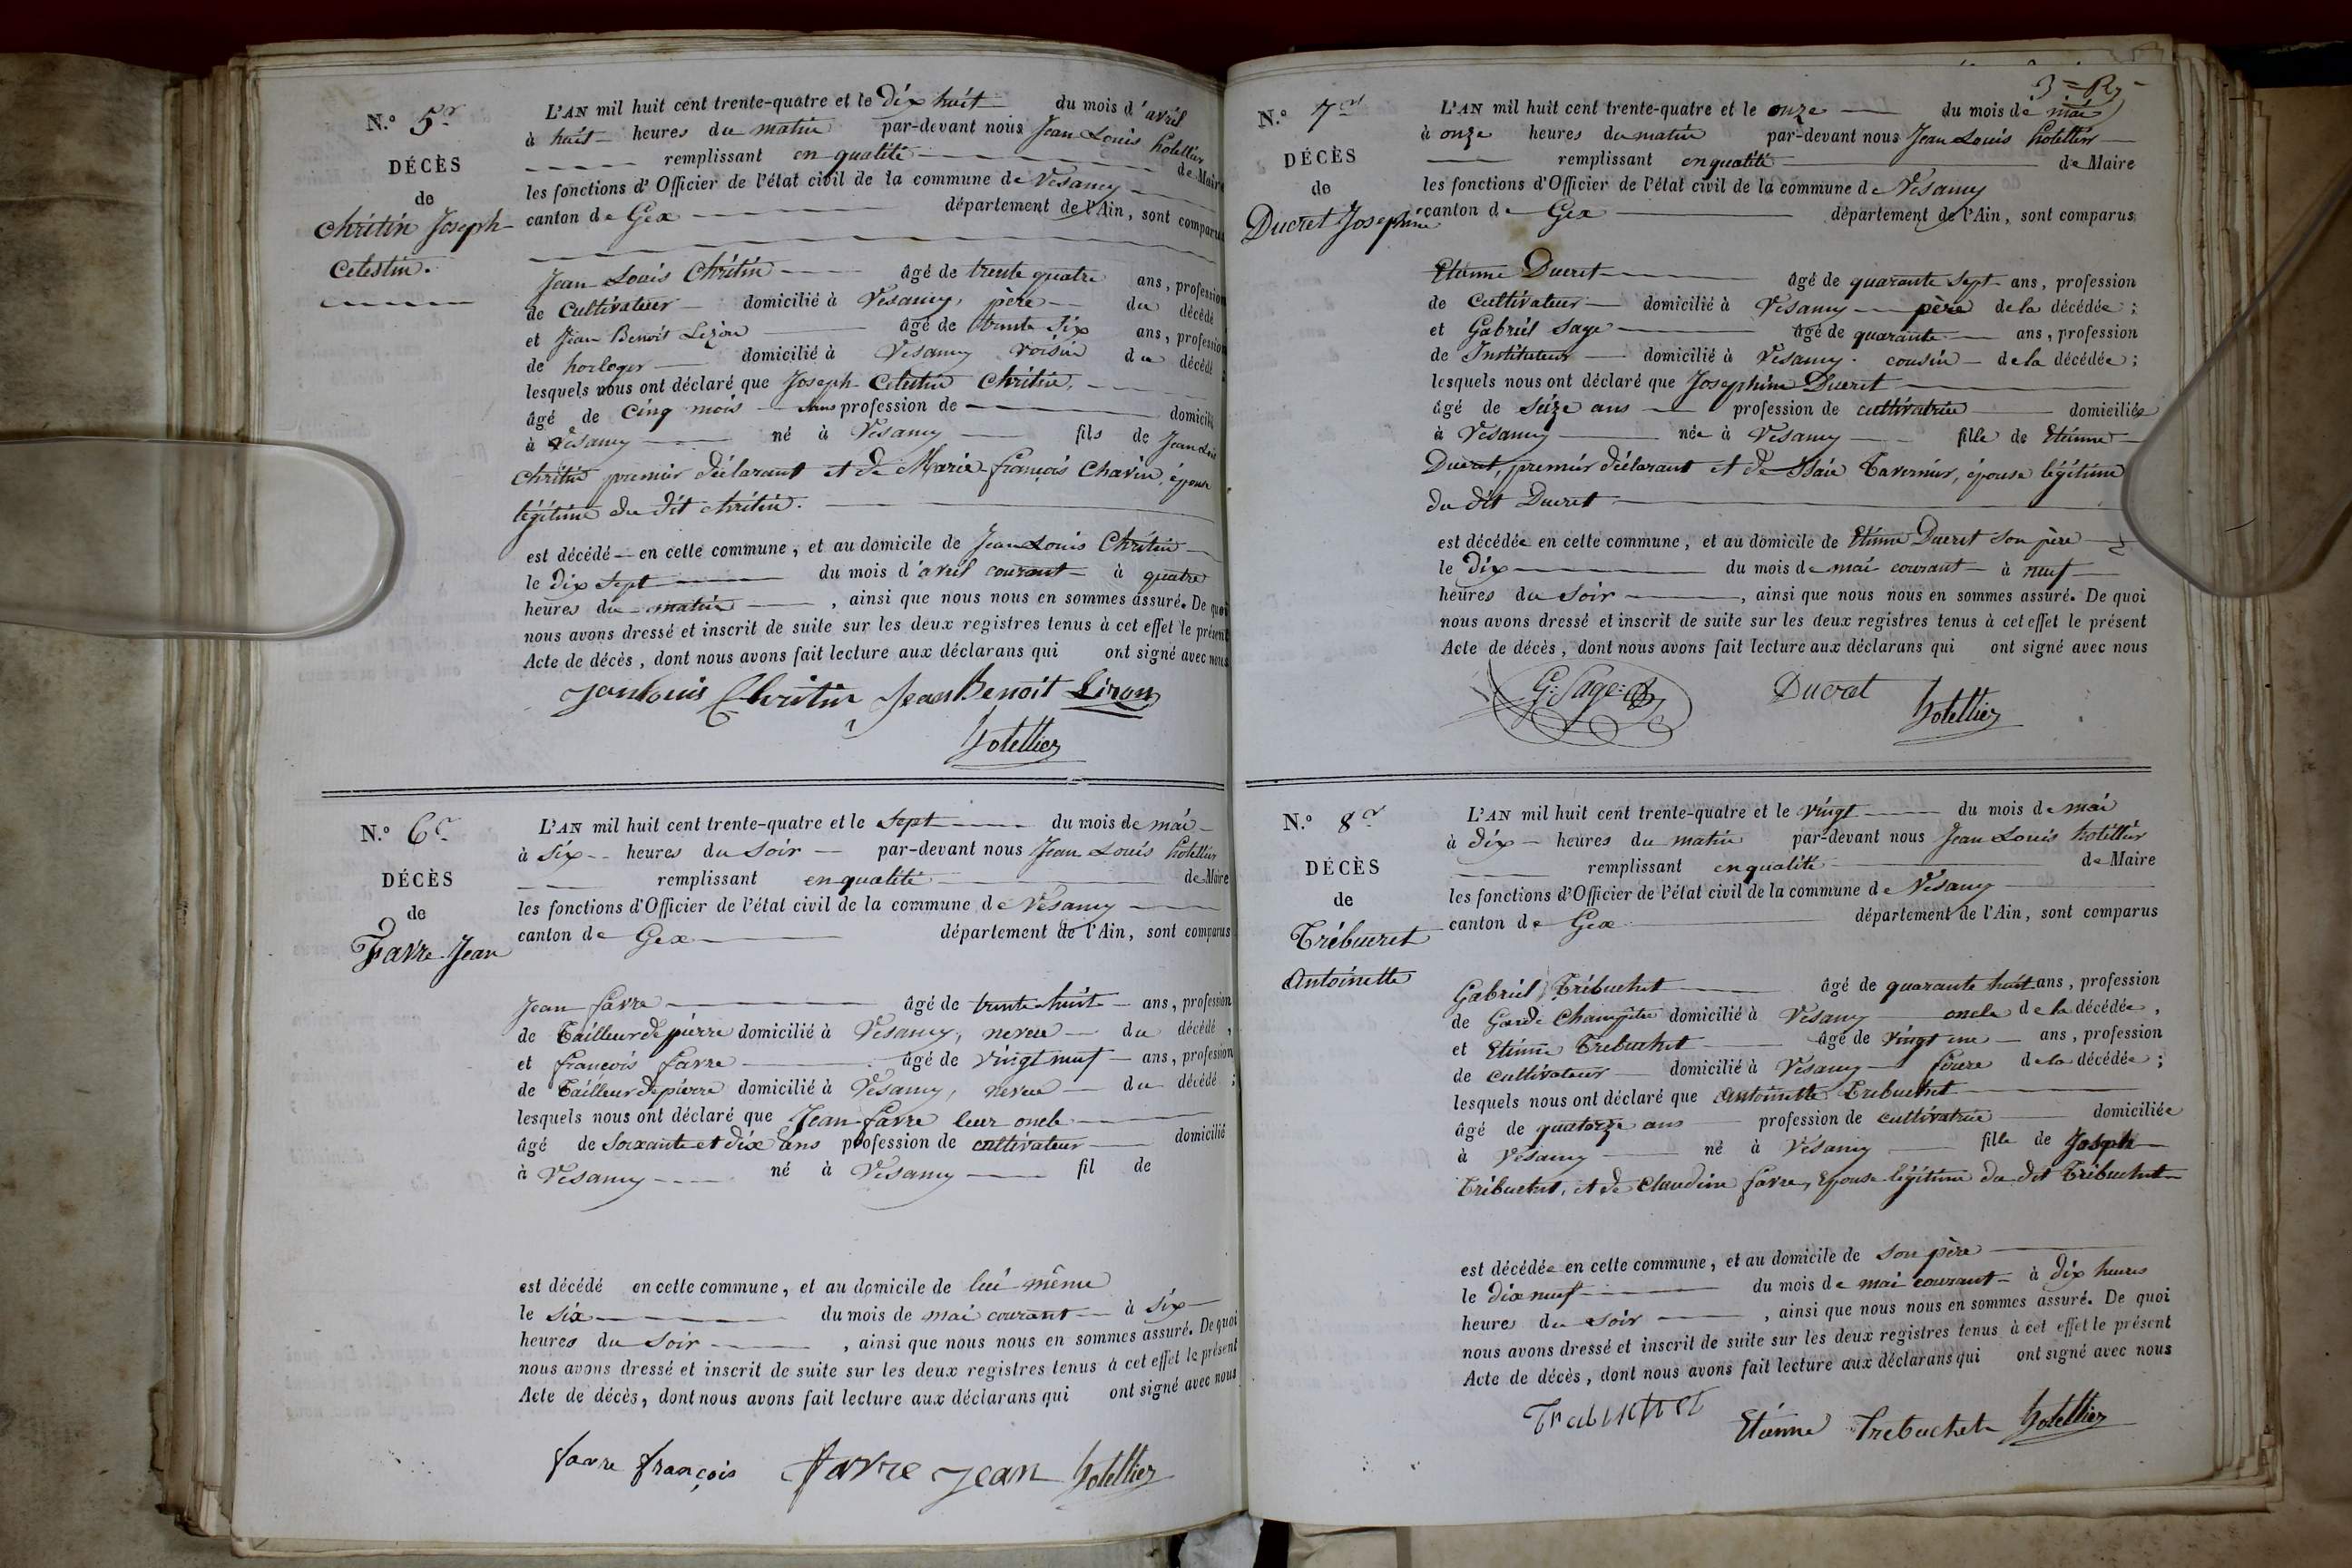 N.º 5
DÉCÈS
de
Chritin Joseph
Celestin.
L'AN mil huit cent trente-quatre et le dix huit du mois d'avril
à huit heures du matin par-devant nous Jean Louis hotellier
remplissant en qualité de Maire
les fonctions d'Officier de l'état civil de la commune de Vesancy
canton de Gex département de l'Ain, sont comparus
Jean Louis Chritin âgé de trente quatre ans, profession
de Cultivateur domicilié à Vesancy, père du décédé
et Jean Benoit Lizon âgé de trente six ans, profession
de horloger domicilié à Vesancy voisin du décédé
lesquels nous ont déclaré que Joseph Celestin Chritin,
âgé de Cinq mois sans profession de domicilié
à Vesancy né à Vesancy fils de Jean Louis
Chritin premier déclarant et de Marie françois Chavin, épouse
légitime du dit chritin.
est décédé en cette commune, et au domicile de Jean Louis Chritin
le dix sept du mois d'avril courant à quatre
heures du matin, ainsi que nous nous en sommes assuré. De quoi
nous avons dressé et inscrit de suite sur les deux registres tenus à cet effet le présent
Acte de décès, dont nous avons fait lecture aux déclarans qui ont signé avec nous
Jean Louis Christin Jean Benoit Lizon
hotellier
N.º 6
DÉCÈS
de
Favre Jean
L'AN mil huit cent trente-quatre et le sept du mois de mai
à six heures du soir par-devant nous Jean Louis hotellier
remplissant en qualité de Maire
les fonctions d'Officier de l'état civil de la commune de Vesancy
canton de Gex département de l'Ain, sont comparus
Jean favre âgé de trente huit ans, profession
de Tailleur de pierre domicilié à Vesancy, neveu du décédé,
et françois favre âgé de vingt neuf ans, profession
de Tailleur de pierre domicilié à Vesancy, neveu du décédé;
lesquels nous ont déclaré que Jean favre leur oncle
âgé de soixante et dix ans profession de cultivateur domicilié
à Vesancy né à Vesancy fil de
est décédé en cette commune, et au domicile de lui même
le six du mois de mai courant à six
heures du soir, ainsi que nous nous en sommes assuré. De quoi
nous avons dressé et inscrit de suite sur les deux registres tenus à cet effet le présent
Acte de décès, dont nous avons fait lecture aux déclarans qui ont signé avec nous
favre françois favre jean hotellier
N.º 7
DÉCÈS
de
Ducret Josephine
L'AN mil huit cent trente-quatre et le onze du mois de mai
à onze heures du matin par-devant nous Jean Louis hotellier
remplissant en qualité de Maire
les fonctions d'Officier de l'état civil de la commune de Vesancy
canton de Gex département de l'Ain, sont comparus
Etienne Ducret âgé de quarante sept ans, profession
de Cultivateur domicilié à Vesancy père de la décédée;
et Gabriel Sage âgé de quarante ans, profession
de Instituteur domicilié à Vesancy. cousin de la décédée;
lesquels nous ont déclaré que Josephine Ducret
âgé de seize ans profession de cultivatrice domiciliée
à Vesancy née à Vesancy fille de Etienne
Ducret, premier déclarant et de Tavernier, épouse légitime
du dit Ducret
est décédée en cette commune, et au domicile de Etienne Ducret son père
le dix du mois de mai courant à neuf
heures du soir, ainsi que nous nous en sommes assuré. De quoi
nous avons dressé et inscrit de suite sur les deux registres tenus à cet effet le présent
Acte de décès, dont nous avons fait lecture aux déclarans qui ont signé avec nous
G: Sage: Ducret hotellier
N.º 8
DÉCÈS
de
Trébucret
Antoinette
L'AN mil huit cent trente-quatre et le vingt du mois de mai
à dix heures du matin par-devant nous Jean Louis hotellier
remplissant en qualité de Maire
les fonctions d'Officier de l'état civil de la commune de Vesancy
canton de Gex département de l'Ain, sont comparus
Gabriel Trébuchet âgé de quarante huit ans, profession
de Garde Champêtre domicilié à Vesancy oncle de la décédée,
et Etienne Trebuchet âgé de vingt une ans, profession
de cultivateur domicilié à Vesancy frère de la décédée;
lesquels nous ont déclaré que Antoinette Trebuchet
âgé de quatorze ans profession de cultivatrice domiciliée
à Vesancy né à Vesancy fille de Joseph
Trébuchet, et de Claudine favre, Epouse légitime du dit Trébuchet
est décédée en cette commune, et au domicile de son père
le dix neuf du mois de mai courant à dix heures
heures du soir, ainsi que nous nous en sommes assuré. De quoi
nous avons dressé et inscrit de suite sur les deux registres tenus à cet effet le présent
Acte de décès, dont nous avons fait lecture aux déclarans qui ont signé avec nous
Etienne Trebuchet hotellier